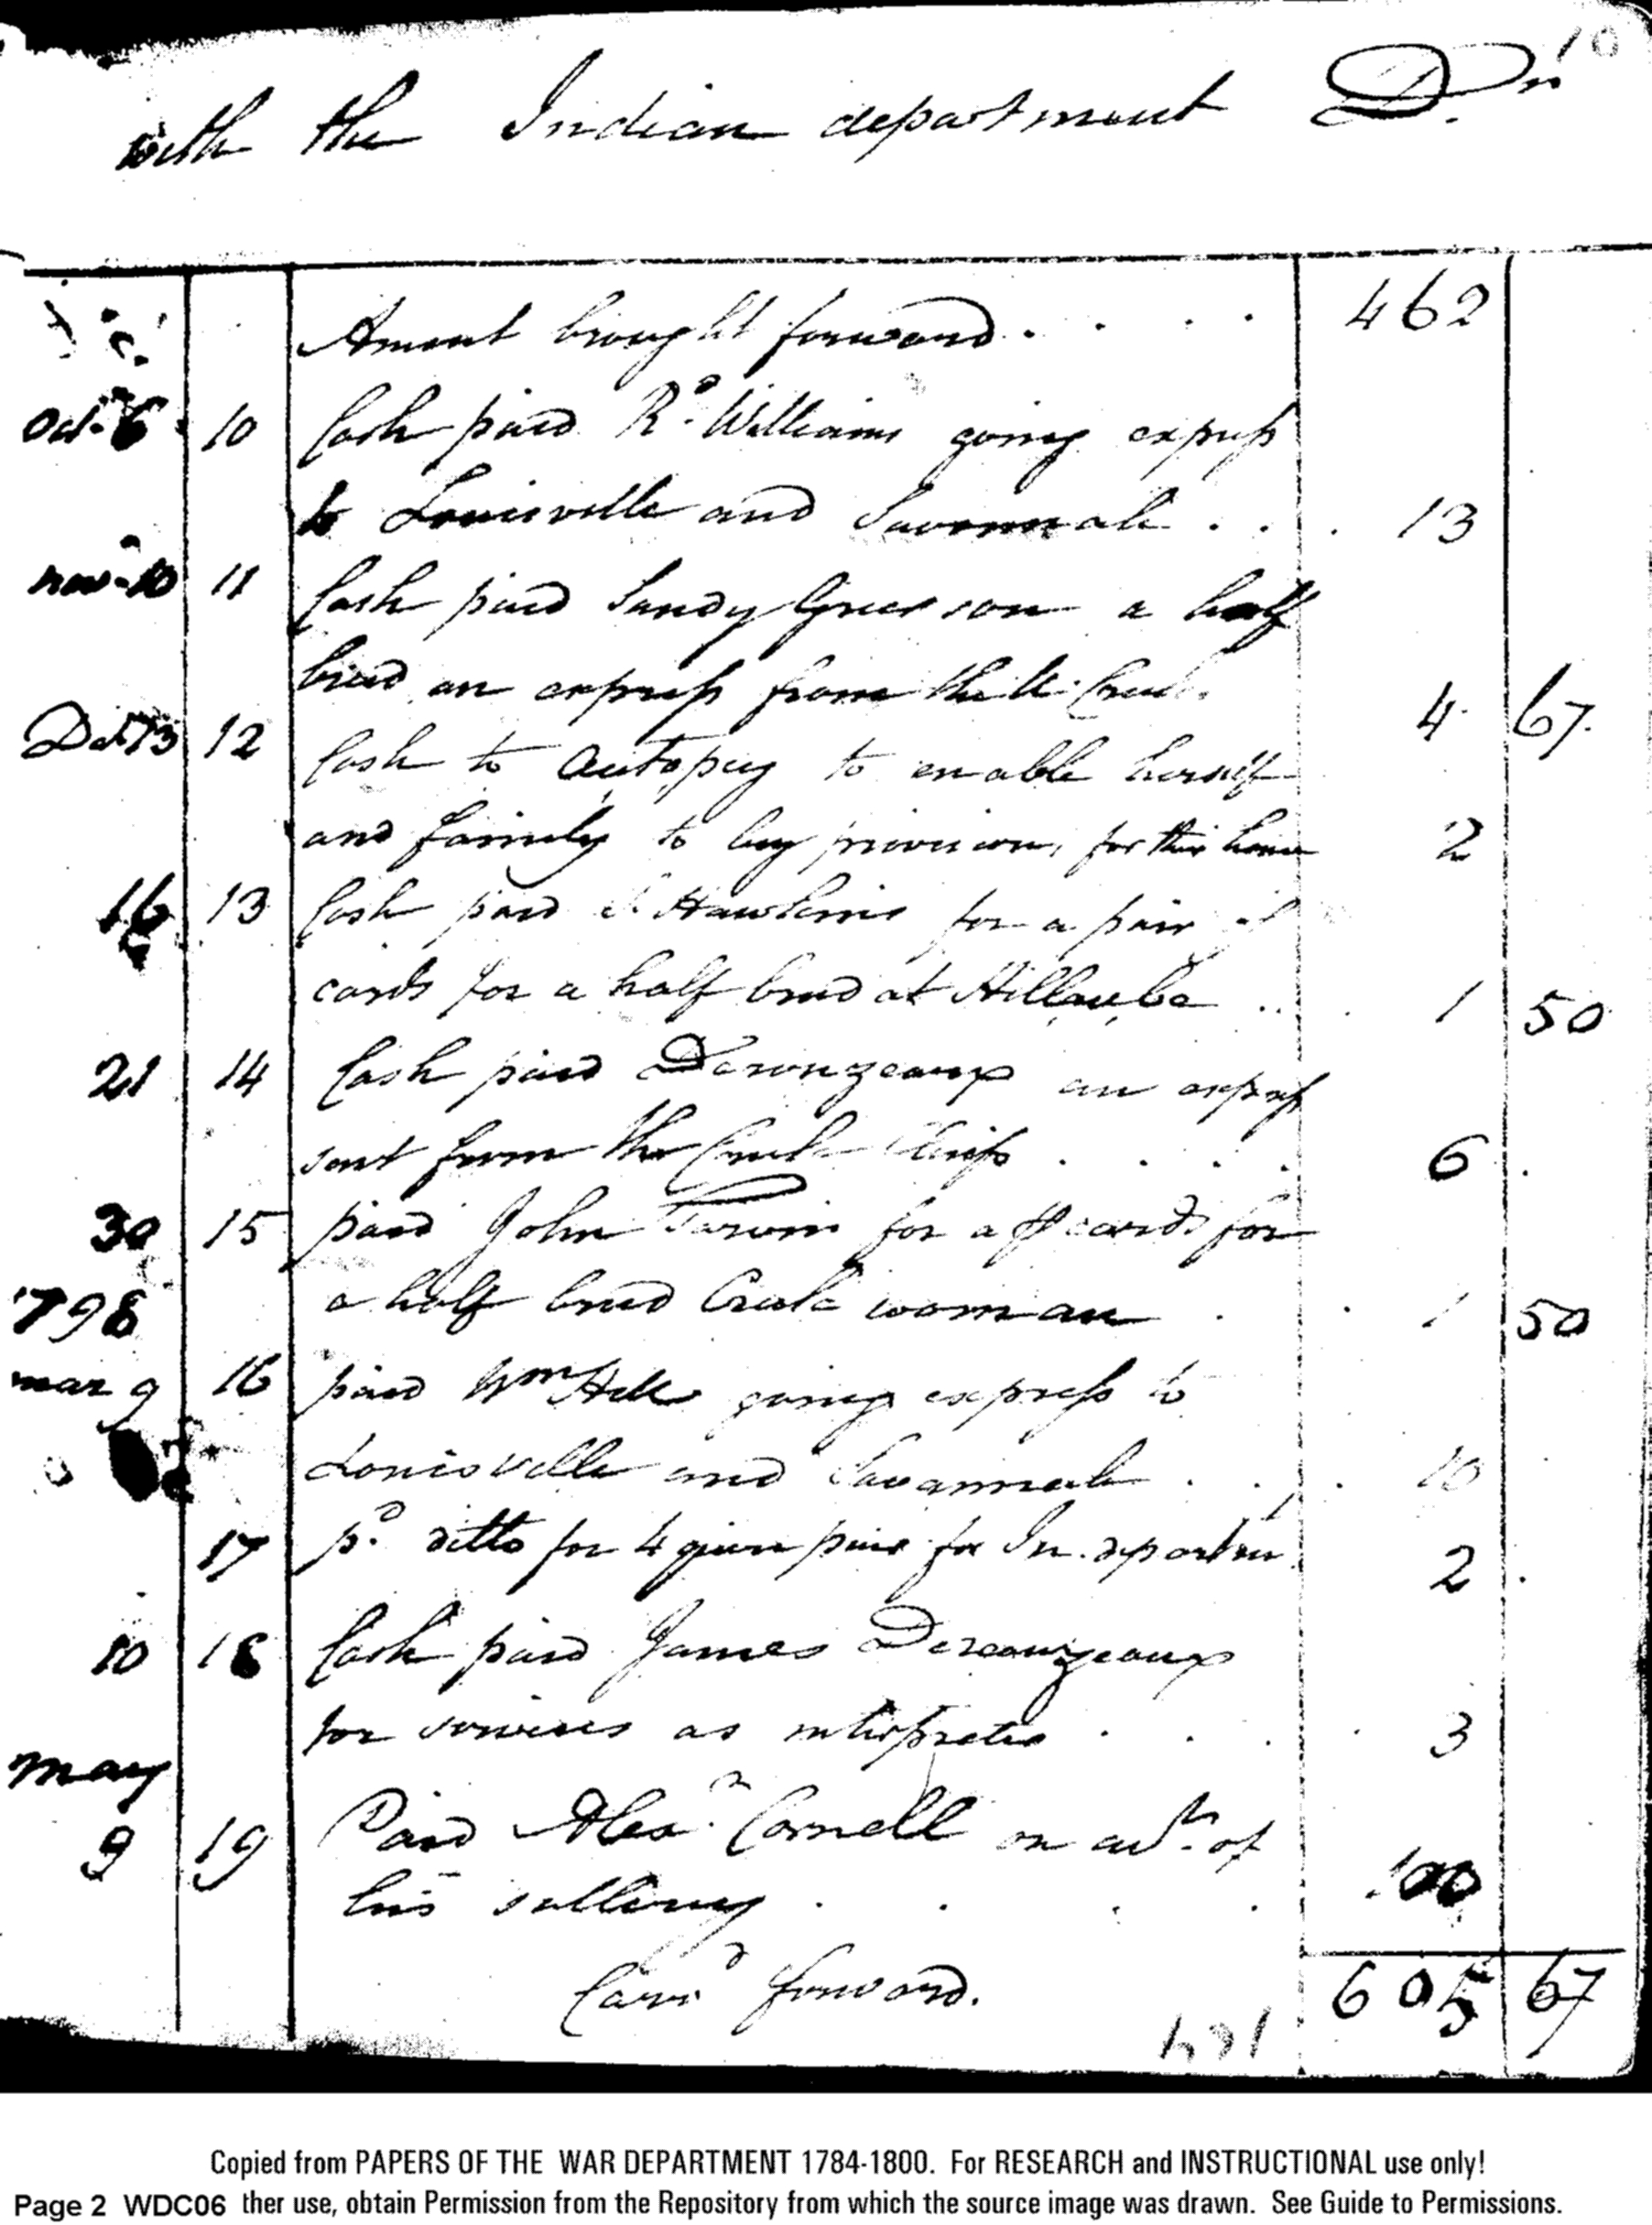 10
with the Indian department Dr.
Amount brought forward . . . . 462
Oct. 6 10 Cash paid Rd. Williams going express
to Louisville and Savannah . . . 13
nov. 10 11 Cash paid Sandy Grierson a half
breed an express from the U. Creeks 4. 67.
Dec 13 12 Cash to Autopey to enable herself
and family to buy provisions, for their home 2
16 13 Cash paid S Hawkins for a pair of
cards for a half breed at Hillaube . . . 1 50
21 14 Cash paid Derouzeaux an express
sent from the Creek Chiefs . . . . 6
30 15 paid John Tarvin for a pr cards for
1798 a half breed Creek woman . . 1 50
mar 9 16 paid Wm Hill going express to
Louisville and Savannah . . . 10
17 pd. ditto for 4 quire for In. departm. 2
10 18 Cash paid James Derouzeaux
for services as interpreter . . . . 3
may
9 19 Paid Alexr. Cornell on act. of
his sallery . . . . 100
Carrd forward. 605 67
Copied from PAPERS OF THE WAR DEPARTMENT 1784-1800. For RESEARCH and INSTRUCTIONAL use only!
Page 2 WDC06 ther use, obtain Permission from the Repository from which the source image was drawn. See Guide to Permissions.